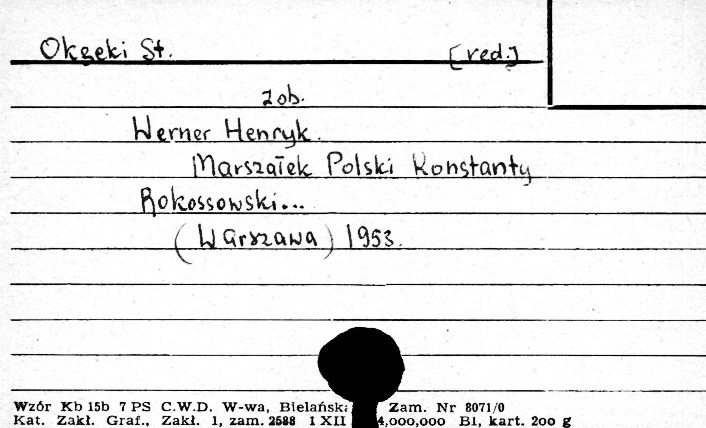 Okęcki St. [red.]
zob.
Werner Henryk.
Marszałek Polski Konstanty
Rokossowski...
(Warszawa) 1953.
Wzór Kb 15b 7 PS C.W.D. W-wa, Bielańska Zam. Nr 8071/0
Kat. Zakł. Graf., Zakł. 1, zam. 2588 1 XII 4,000,000 Bl, kart. 200 g